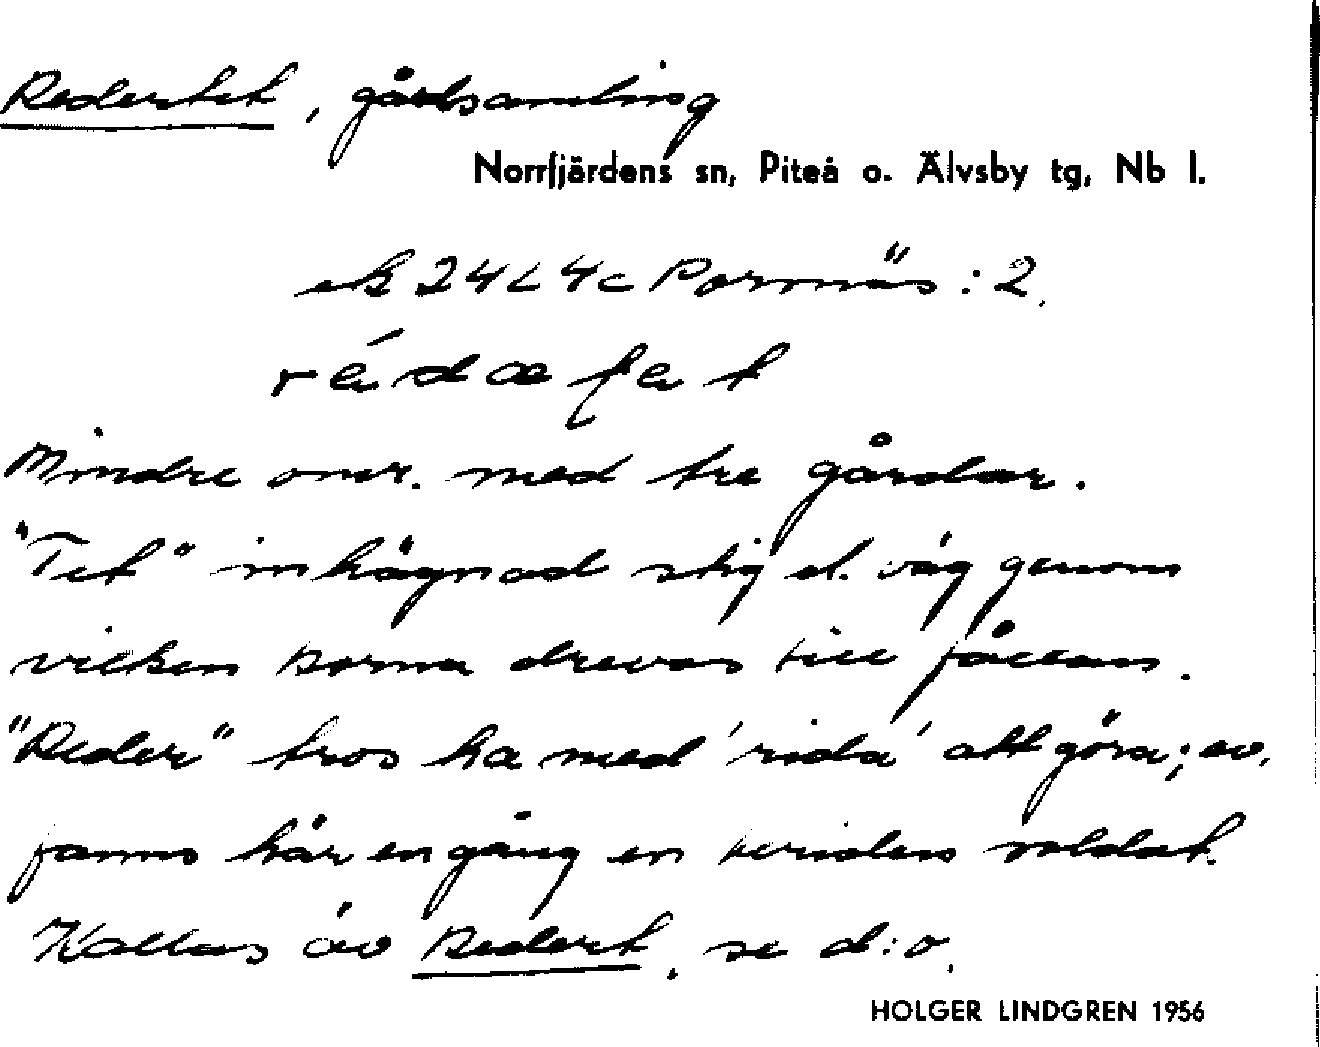 Redertet, gårdsamling
Norrfjärdens sn, Piteå o. Älvsby tg, Nb l.
ek 24L4c Porsnäs:2.
Mindre områ. med tre gårdar.
"Tet" inhägnad stig el. väg genom
vilken korna drevos till fållan.
"Reder" tros ha med 'rida' att göra; ev.
fanns här en gång en beriden soldat.
Kallas äv Redert, se d:o.
HOLGER LINDGREN 1956